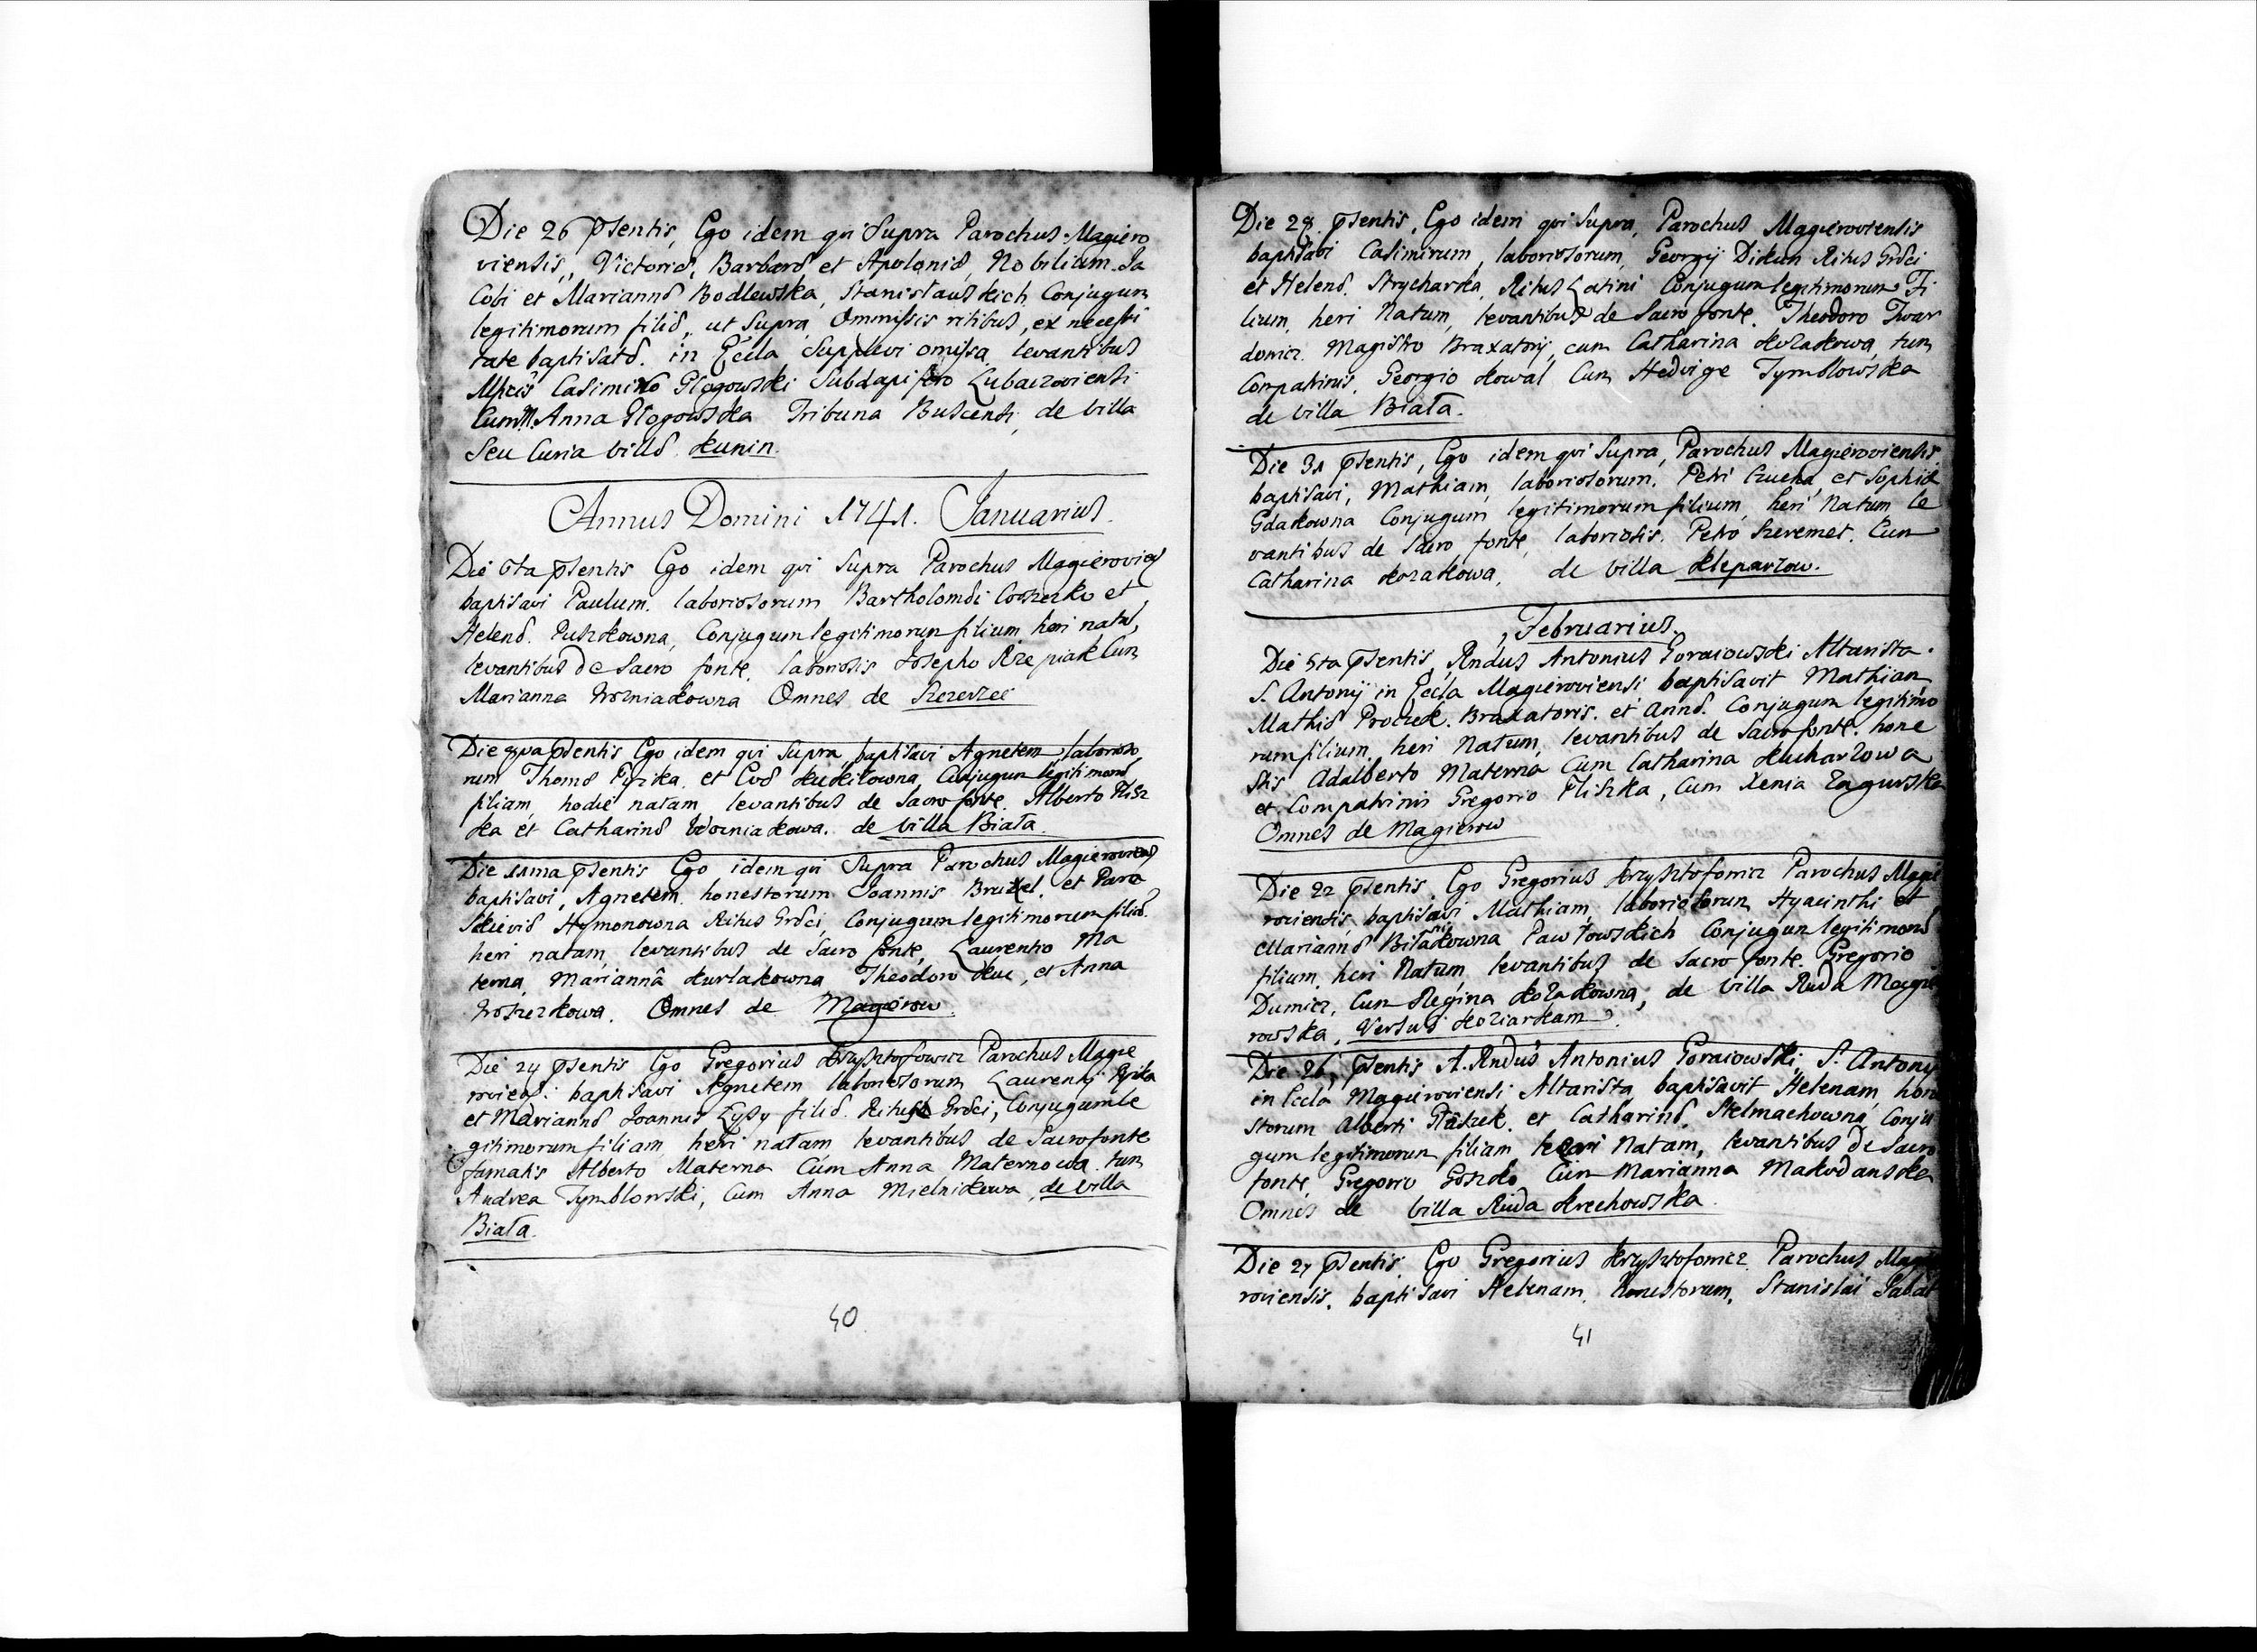 Die 26 pSentis, Ego idem qui Supra Parochus Magiero
viensis, Victoriæ, Barbaræ, et Apoloniæ, Nobilium Ja
Cobi et Mariannæ Bodlewska, Stanislauskich Conjugum
legitimorum filiæ, ut Supra Ommissis ritibus, ex necessi
tate baptisatæ. in Eccla Supplevi omissa levantibus
Casimiro Glogowski Subdapifero Lubaczoviensi
Cum M. Anna Glogowska Tribuna Buscensi, de villa
Seu Curia villæ Kunin.
Annus Domini 1741. Januarius.
Die 6ta pSentis Ego idem qui Supra Parochus Magierovien
baptisavi Paulum. laboriosorum Bartholomæi et
Helenæ. Puszkowna, Conjugum legitimorum filium heri natū,
levantibus de Sacro fonte. laboriosis Josepho Rzepiak Cum
Marianna Wozniakowna Omnes de Szczerzec
Die pSentis Ego idem qui Supra, baptisavi Agnetem, laborioso
rum Thomæ Pyzika, et Evæ Kukilowna, Conjugum legitimorū
filiam, hodie natam, levantibus de Sacro fonte. Alberto Flisz
ka et Catharinæ Wozniakowa. de villa Biała.
Die 11ma pSentis Ego idem qui Supra Parochus Magierovien
baptisavi, Agnetem. honestorum Joannis et Para
skieviæ Hymonowna Ritus Græci, Conjugum legitimorum filiā.
heri natam, levantibus de Sacro fonte, Laurentio Ma
terna, Mariannâ Kurlakowna, Theodoro Kuc, et Anna
Woszczkowa. Omnes de Magierow.
Die 24 pSentis Ego Gregorius Krzysztofowicz Parochus Magie
rovien: baptisavi Agnetem laboriosorum Laurentij Pyzika
et Mariannæ Joannis Łysy filiæ. Ritus Græci, Conjugum le
gitimorum filiam heri natam levantibus de Sacro fonte
famatis Alberto Materna Cum Anna Maternowa tum
Andrea Tymblowski, Cum Anna Mielnikowa, de villa
Biała.
40
Die 28. pSentis, Ego idem qui Supra, Parochus Magieroviensis
baptisavi Casimirum, laboriosorum, Georgij Dikun Ritus Græci
et Helenæ. Strycharka, Ritus Latini Conjugum legitimorum Fi
lium, heri Natum, levantibus de Sacro fonte. Theodoro Twar
dowicz Magistro Braxatorij, cum Catharina Kozakowa, tum
Compatrinis. Georgio Kowal Cum Hedvige Tymblowska
de villa Biała.
Die 31 pSentis, Ego idem qui Supra, Parochus Magieroviensis
baptisavi, Mathiam, laboriosorum. Petri et Sophiæ
Gdakowna Conjugum legitimorum filium, heri Natum le
vantibus de Sacro fonte, laboriosis. Petro Szeremet. Cum
Catharina Kozakowa, de villa Kleparzow.
Februarius.
Die 5ta pSentis, Rndus Antonius Goraiowski Altarista
S. Antonij in Eccla Magieroviensi baptisavit Mathiam
Mathiæ Proczek. Braxatoris. et Annæ. Conjugum legitimo
rum filium, heri Natum, levantibus de Sacro fonte. hone
stis Adalberto Materna Cum Catharina Kucharzowa
et Compatrinis Gregorio Fliszka, Cum Xenia Zagurska
Omnes de Magierow
Die 22 pSentis, Ego Gregorius Krzysztofowicz Parochus Magie
roviensis, baptisavi Mathiam, laboriosorum Hyacinthi et
Mariannæ Pawłowskich Conjugum legitimorū
filium, heri Natum, levantibus de Sacro fonte. Gregorio
Dumicz, Cum Regina Kozakowna, de villa Ruda Magie
rowska, Versus Koziarkam.
Die 26, pSentis A. Rndus Antonius Goraiowski, S. Antony
in Eccla Magieroviensi Altarista baptisavit Helenam hon
storum Alberti et Catharinæ. Stelmachowna Conju
gum legitimorum filiam Natam, levantibus de Sacro
fonte, Gregorio Goszko Cum Marianna
Omnes de villa Ruda Krechowska.
Die 27 pSentis. Ego Gregorius Krzysztofowicz. Parochus Magie
roviensis. baptisavi Helenam. honestorum, Stanislai
41